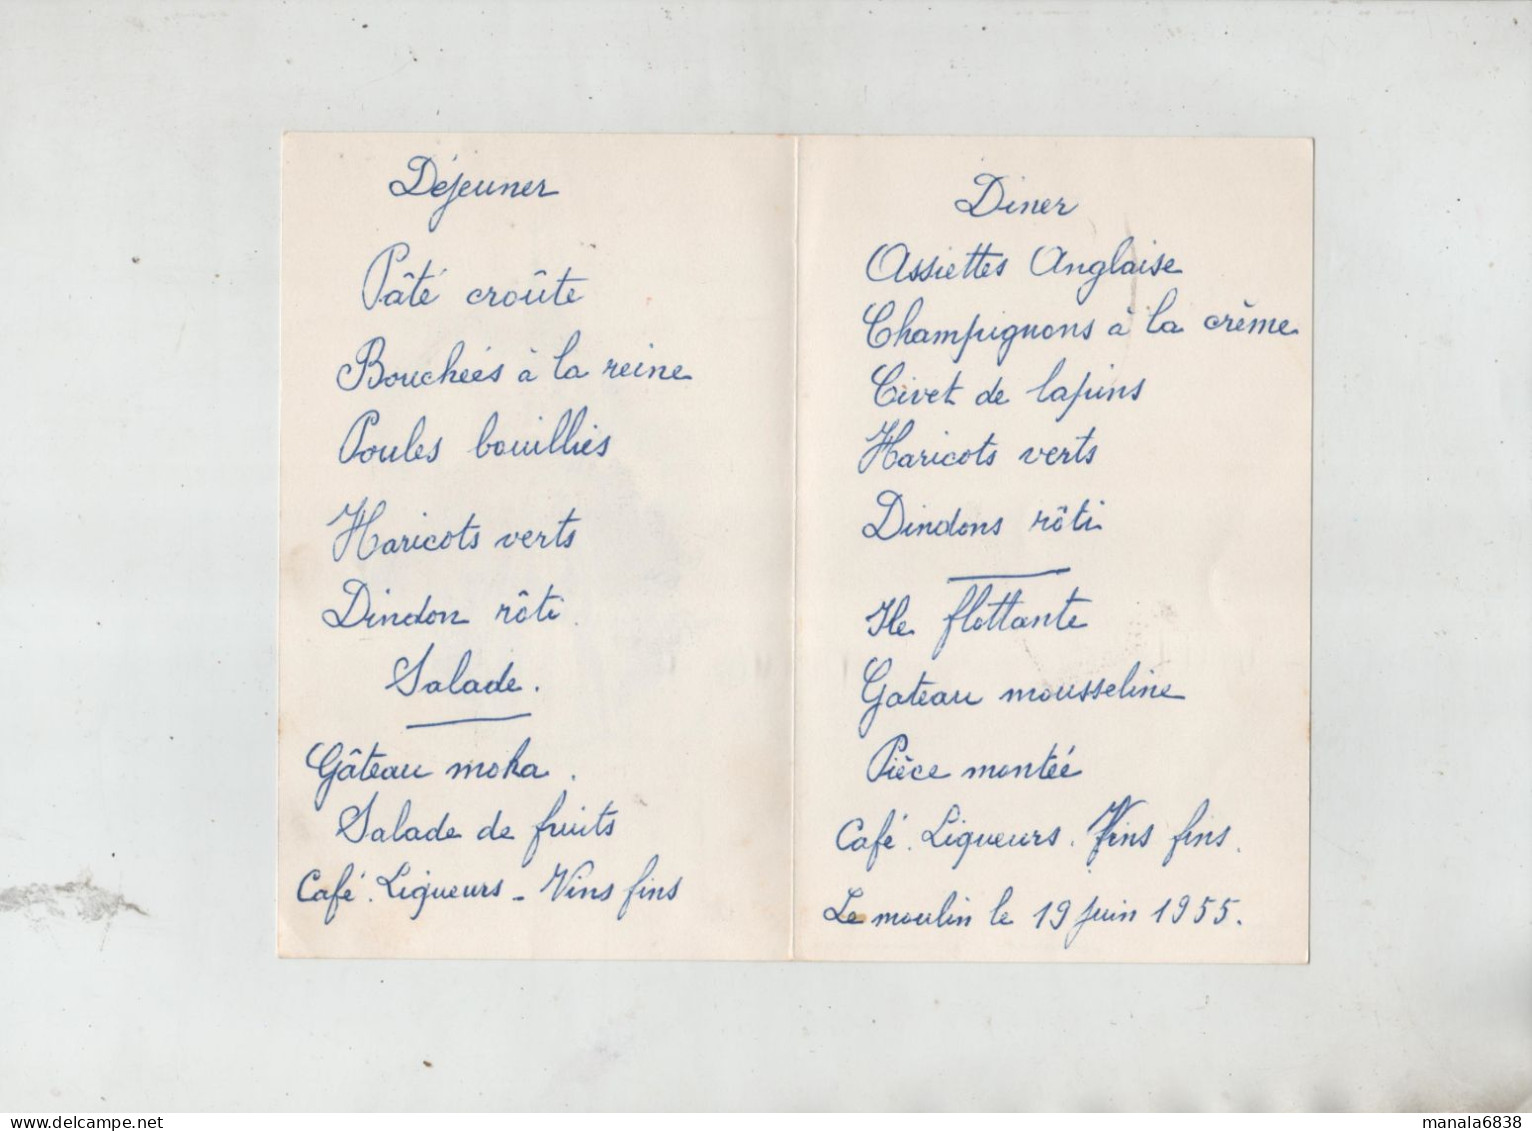 Déjeuner
Pâté croûte
Bouchées à la reine
Poules bouillies
Haricots verts
Dindon rôti
Salade.
Gâteau moka.
Salade de fruits
Café. Liqueurs - Vins fins
Diner
Assiettes Anglaise
Champignons à la crème
Civet de lapins
Haricots verts
Dindons rôti
Ile flottante
Gateau mousseline
Pièce montée
Café. Liqueurs. Vins fins.
Le moulin le 19 juin 1955.
manala6838